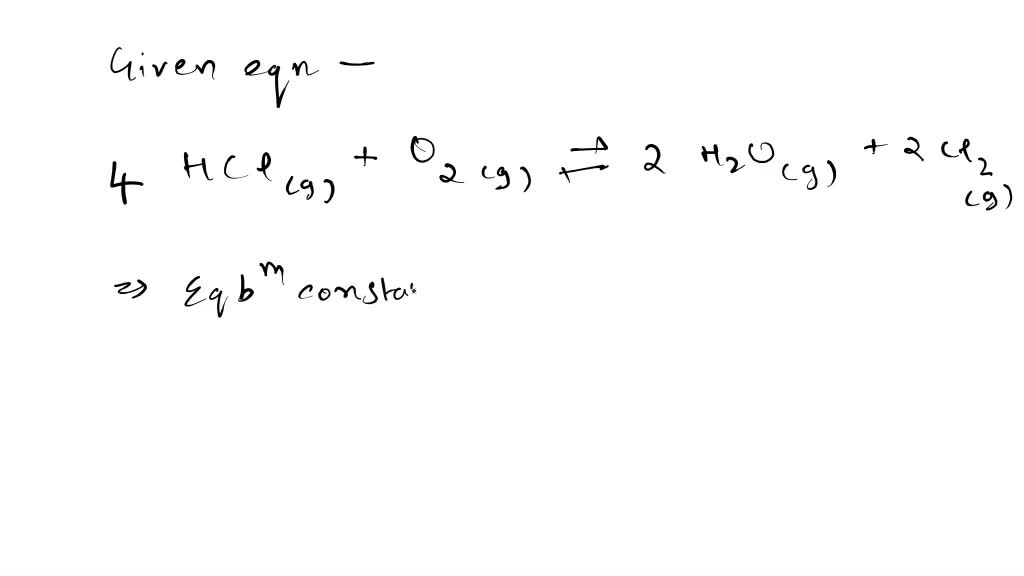 Given eqn —
4 HCl(g) + O2(g) ⇌ 2 H2O(g) + 2 Cl2(g)
⇒ Eqb^m consta